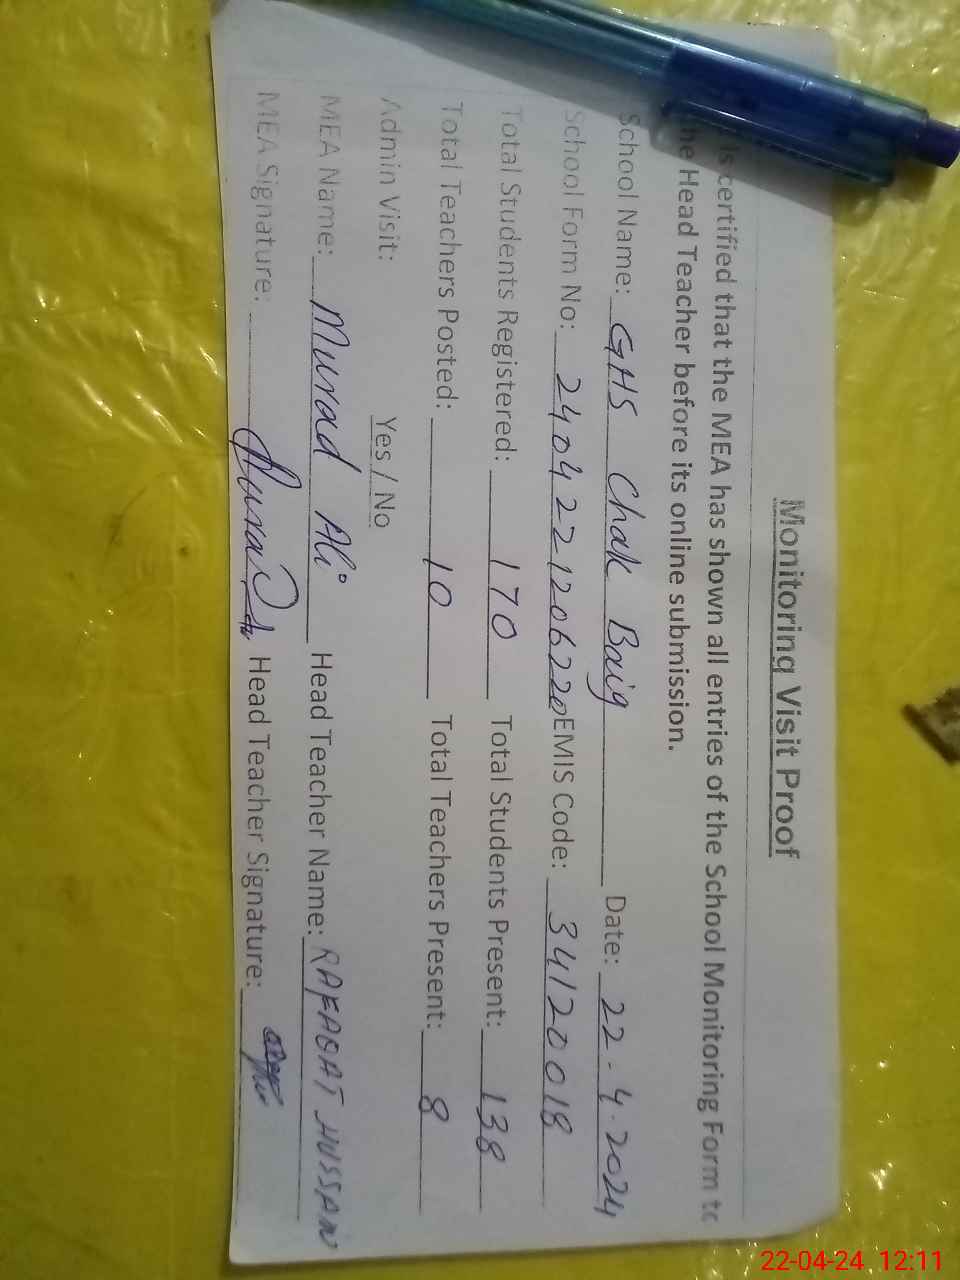 Monitoring Visit Proof
is certified that the MEA has shown all entries of the School Monitoring Form to
the Head Teacher before its online submission.
School Name: GHS Chak Baig Date: 22-4-2024
School Form No: 2404221206220 EMIS Code: 34120018
Total Students Registered: 170 Total Students Present: 138
Total Teachers Posted: 10 Total Teachers Present: 8
Admin Visit: Yes / No
MEA Name: Murad Ali Head Teacher Name: RAFAQAT HUSSAN
MEA Signature: Head Teacher Signature:
22-04-24 12:11